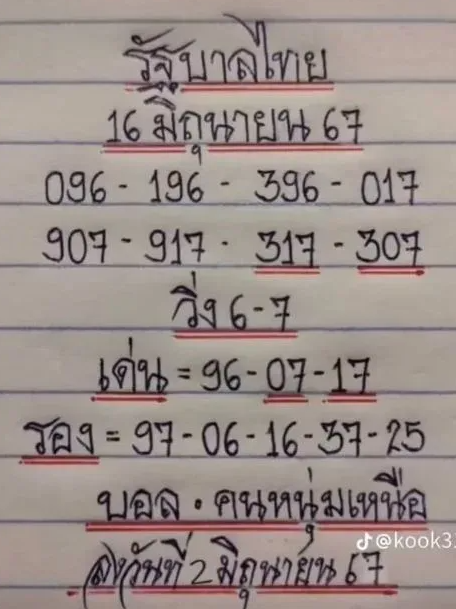 รัฐบาลไทย
16 มิถุนายน 67
096 - 196 - 396 - 017
907 - 917 - 317 - 307
วิ่ง 6 - 7
เด่น = 96 - 07 - 17
รอง = 97 - 06 - 16 - 37 - 25
บอล . คนหนุ่มเหนือ
@kook3
วันที่ 2 มิถุนายน 67